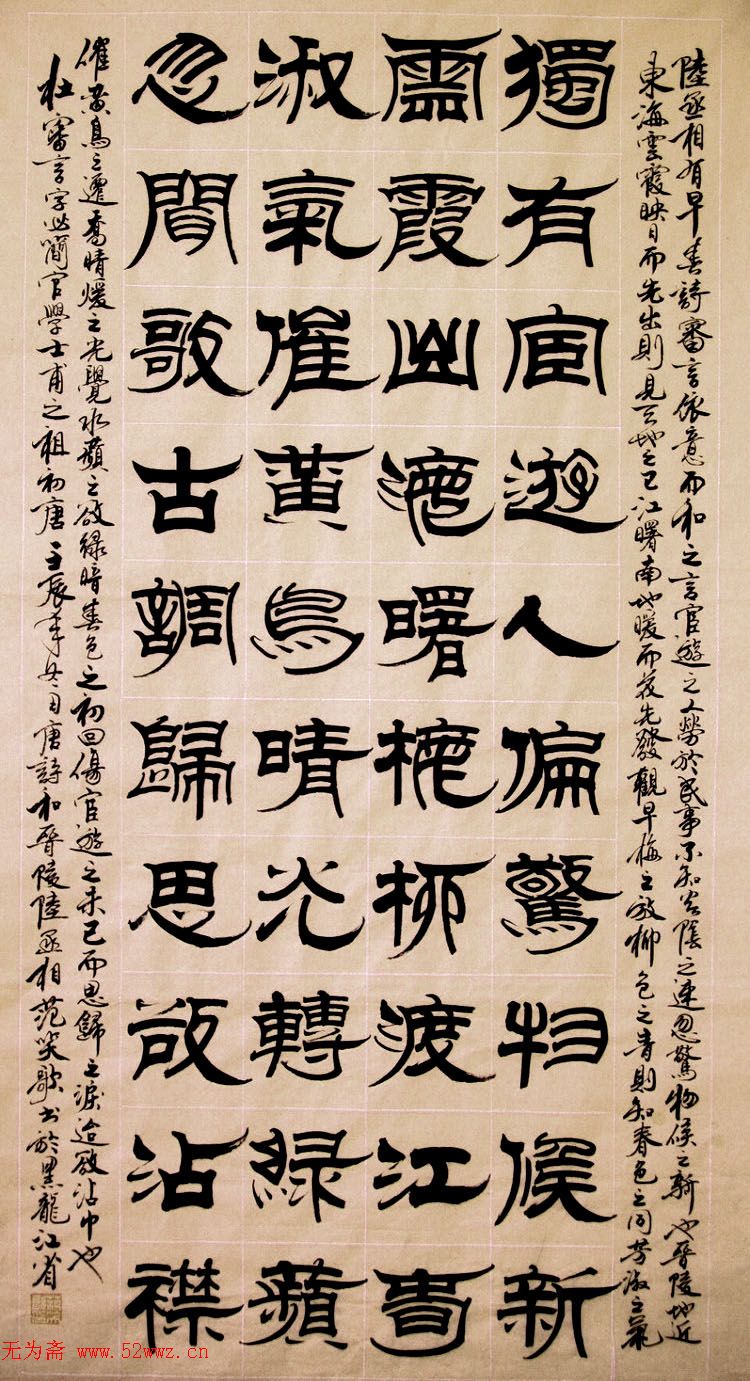 陸丞相有早春詩審言依意而和之言宦遊之人勞於民事不知光陰之速忽驚物候之新也晉陵地近
東海雲霞映日而先出則見天地之已江曙南地暖而花先發觀早梅之放柳色之青則知春色之同芳淑之氣
獨有宦遊人偏驚物候新
雲霞出海曙梅柳渡江春
淑氣催黃鳥晴光轉綠蘋
忽間歌古調歸思欲沾襟
催黃鳥之遷喬晴煖之光覺水蘋之欲綠暗春色之初回傷宦遊之未已而思歸之淚迨欲沾巾也
杜審言字必簡官學士甫之祖初唐壬辰年冬月唐詩和晉陵陸丞相范笑歌書於黑龍江省
无为斋 www.52wwz.cn